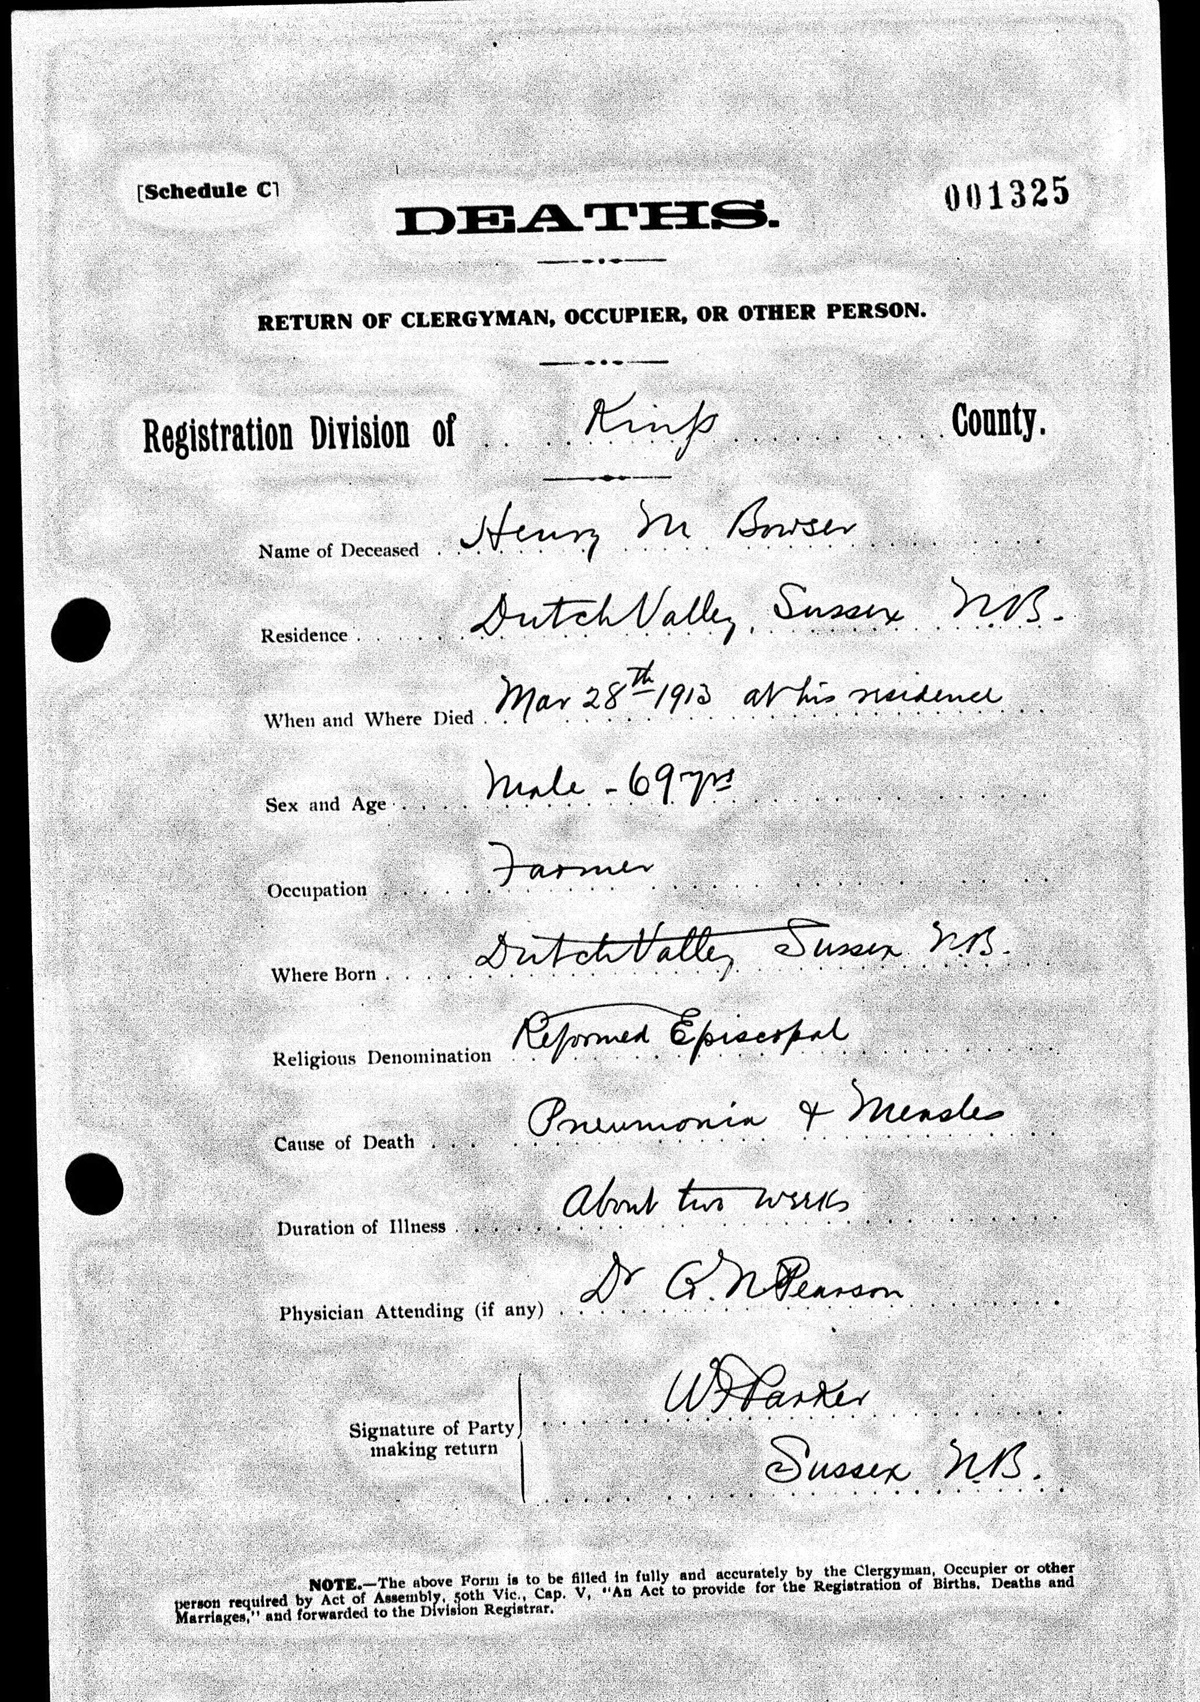 [Schedule C]
001325
DEATHS.
RETURN OF CLERGYMAN, OCCUPIER, OR OTHER PERSON.
Registration Division of Kings County.
Name of Deceased Henry M Bowser
Residence Dutch Valley, Sussex N.B.
When and Where Died Mar 28th 1913 at his residence
Sex and Age Male - 69 yrs
Occupation Farmer
Where Born Dutch Valley Sussex N.B.
Religious Denomination Reformed Episcopal
Cause of Death Pneumonia & Measles
Duration of Illness About two weeks
Physician Attending (if any) Dr G. N Pearson
W F Parker
Signature of Party
making return
Sussex N.B.
NOTE.—The above Form is to be filled in fully and accurately by the Clergyman, Occupier or other
person required by Act of Assembly, 50th Vic., Cap. V, "An Act to provide for the Registration of Births, Deaths and
Marriages," and forwarded to the Division Registrar.